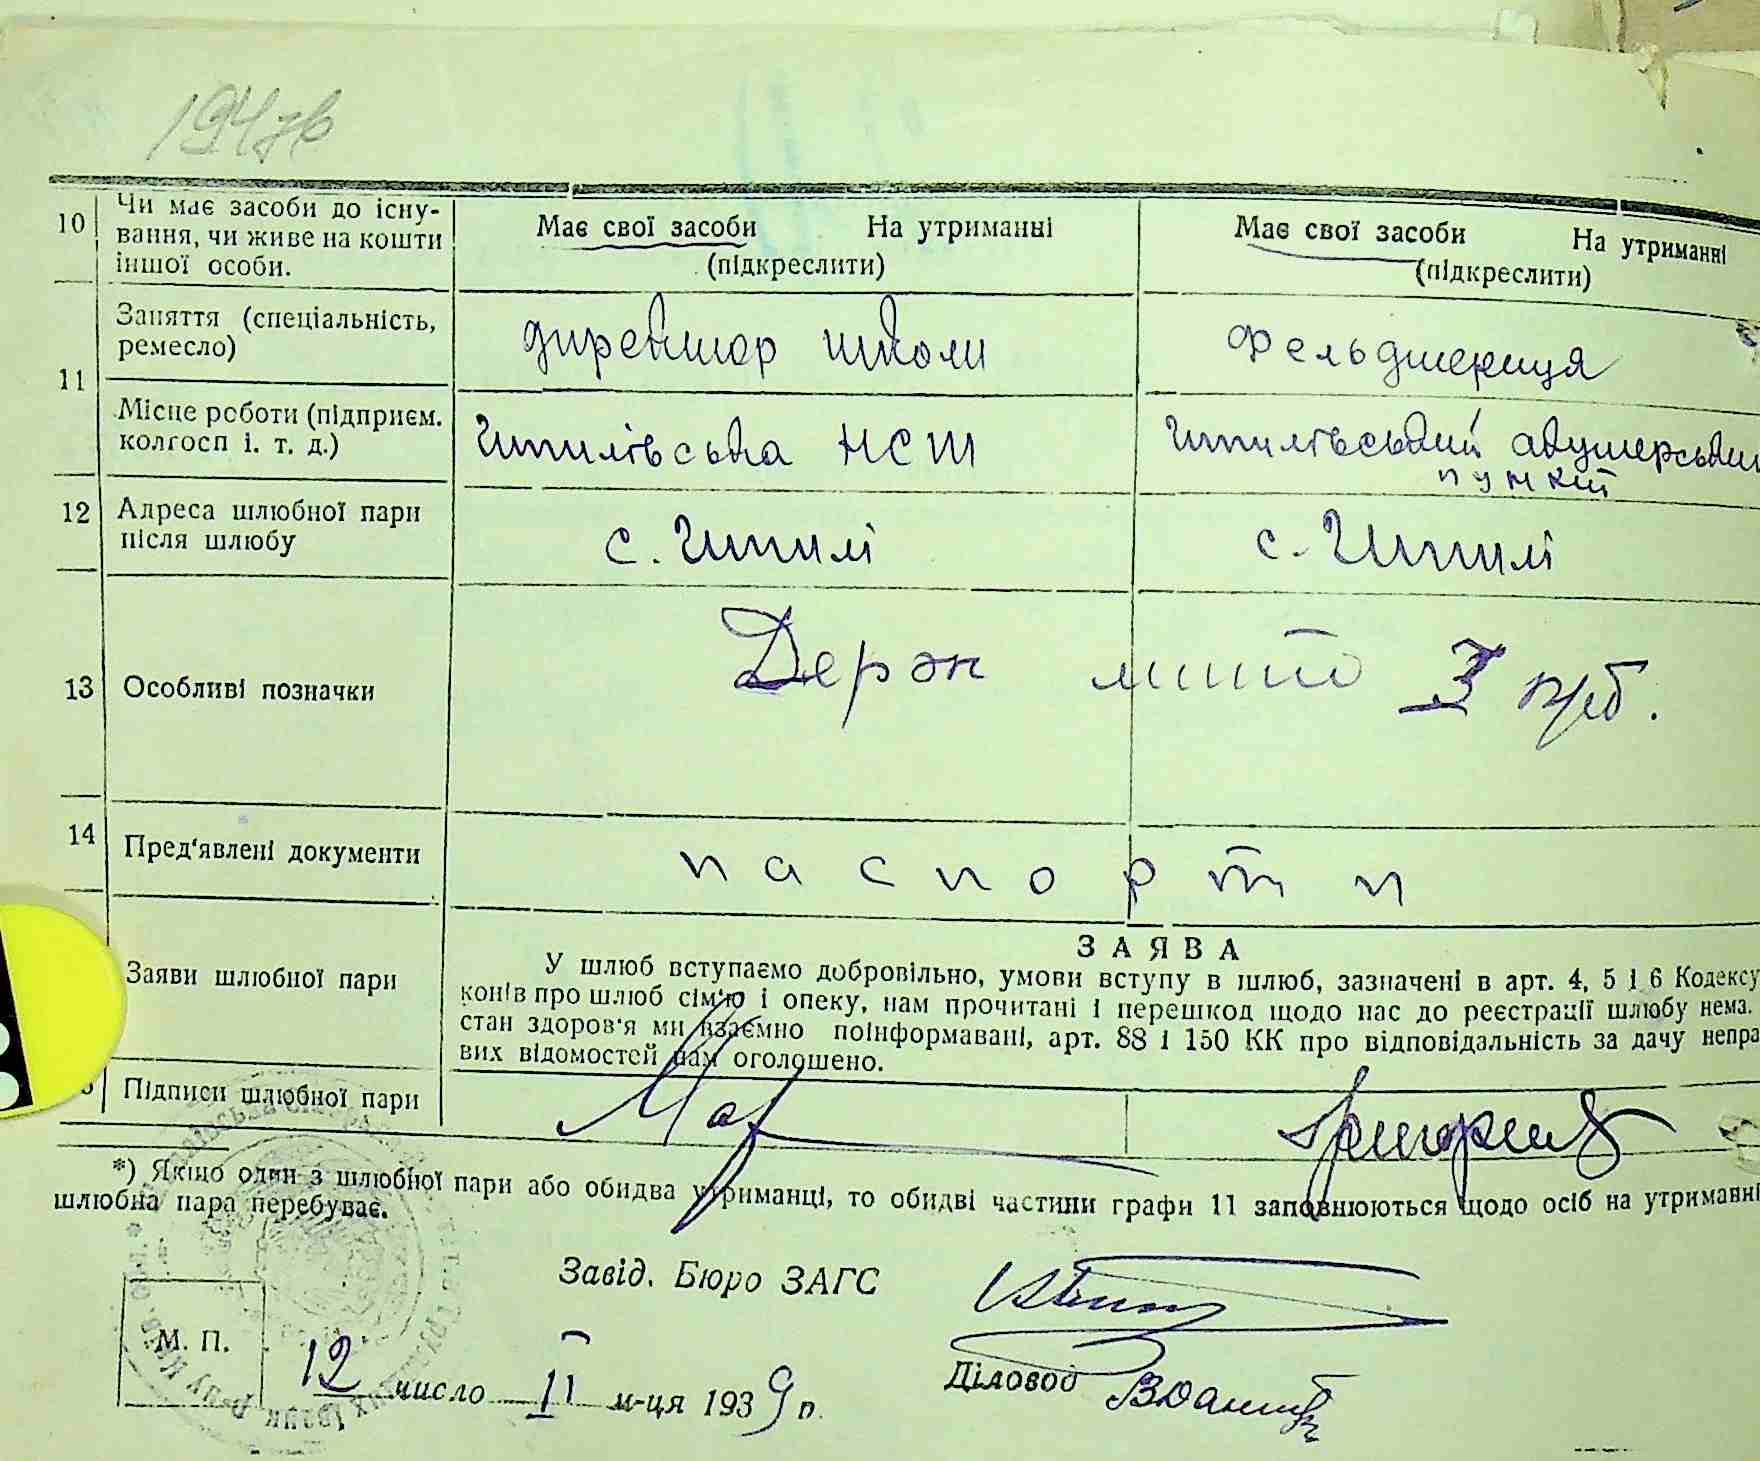 10 Чи має засоби до існу-
вання, чи живе на кошти
іншої особи.
Має свої засоби На утриманні
(підкреслити)
Має свої засоби На утриманні
(підкреслити)
11 Заняття (спеціальність,
ремесло)
директор школи
фельдшериця
Місце роботи (підприєм.
колгосп і. т. д.)
Шпилівська НСШ
Шпилівський акушерський
пункт
12 Адреса шлюбної пари
після шлюбу
с. Шпилі
с. Шпилі
13 Особливі позначки
Держ мито 3 крб.
14 Пред'явлені документи
паспорти
Заяви шлюбної пари
ЗАЯВА
У шлюб вступаємо добровільно, умови вступу в шлюб, зазначені в арт. 4, 5 і 6 Кодексу
конів про шлюб сім'ю і опеку, нам прочитані і перешкод щодо нас до реєстрації шлюбу нема.
стан здоров'я ми взаємно поінформавані, арт. 88 і 150 КК про відповідальність за дачу непра
вих відомостей нам оголошено.
Підписи шлюбної пари
*) Якщо один з шлюбної пари або обидва утриманці, то обидві частини графи 11 заповнюються щодо осіб на утриманні
шлюбна пара перебуває.
Завід. Бюро ЗАГС
М. П.
12 число II м-ця 1939 р.
Діловод